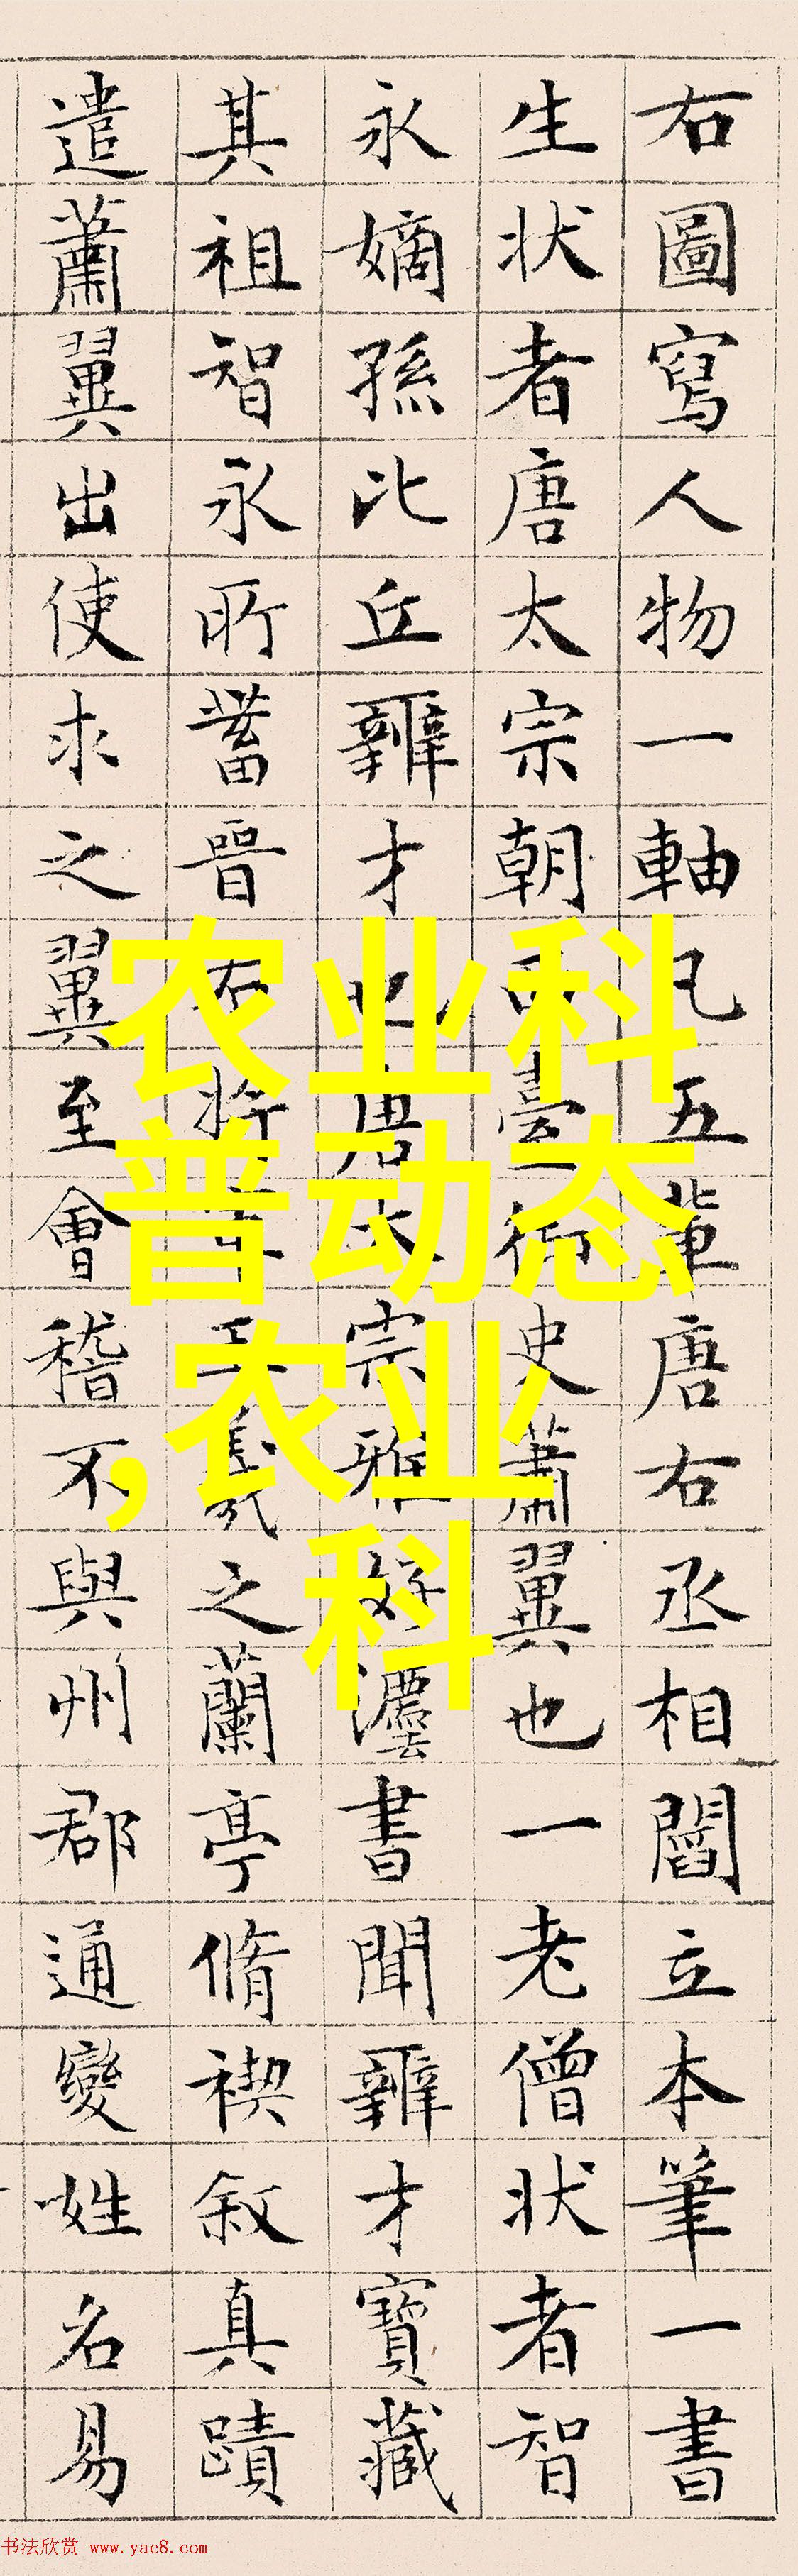 右圖寫人物一軸凡五輩唐右丞相閻立本筆一書
生状者唐太宗朝西臺御史蕭翼也一老僧状者智
永嫡孫比丘辯才也唐太宗雅好灋書聞辯才寶藏
其祖智永所蓄晉右將軍王羲之蘭亭脩禊叙真蹟
遣蕭翼出使求之翼至會稽不與州郡通變姓名易
农业科
普动态
,农业
科
书法欣赏 www.yac8.com